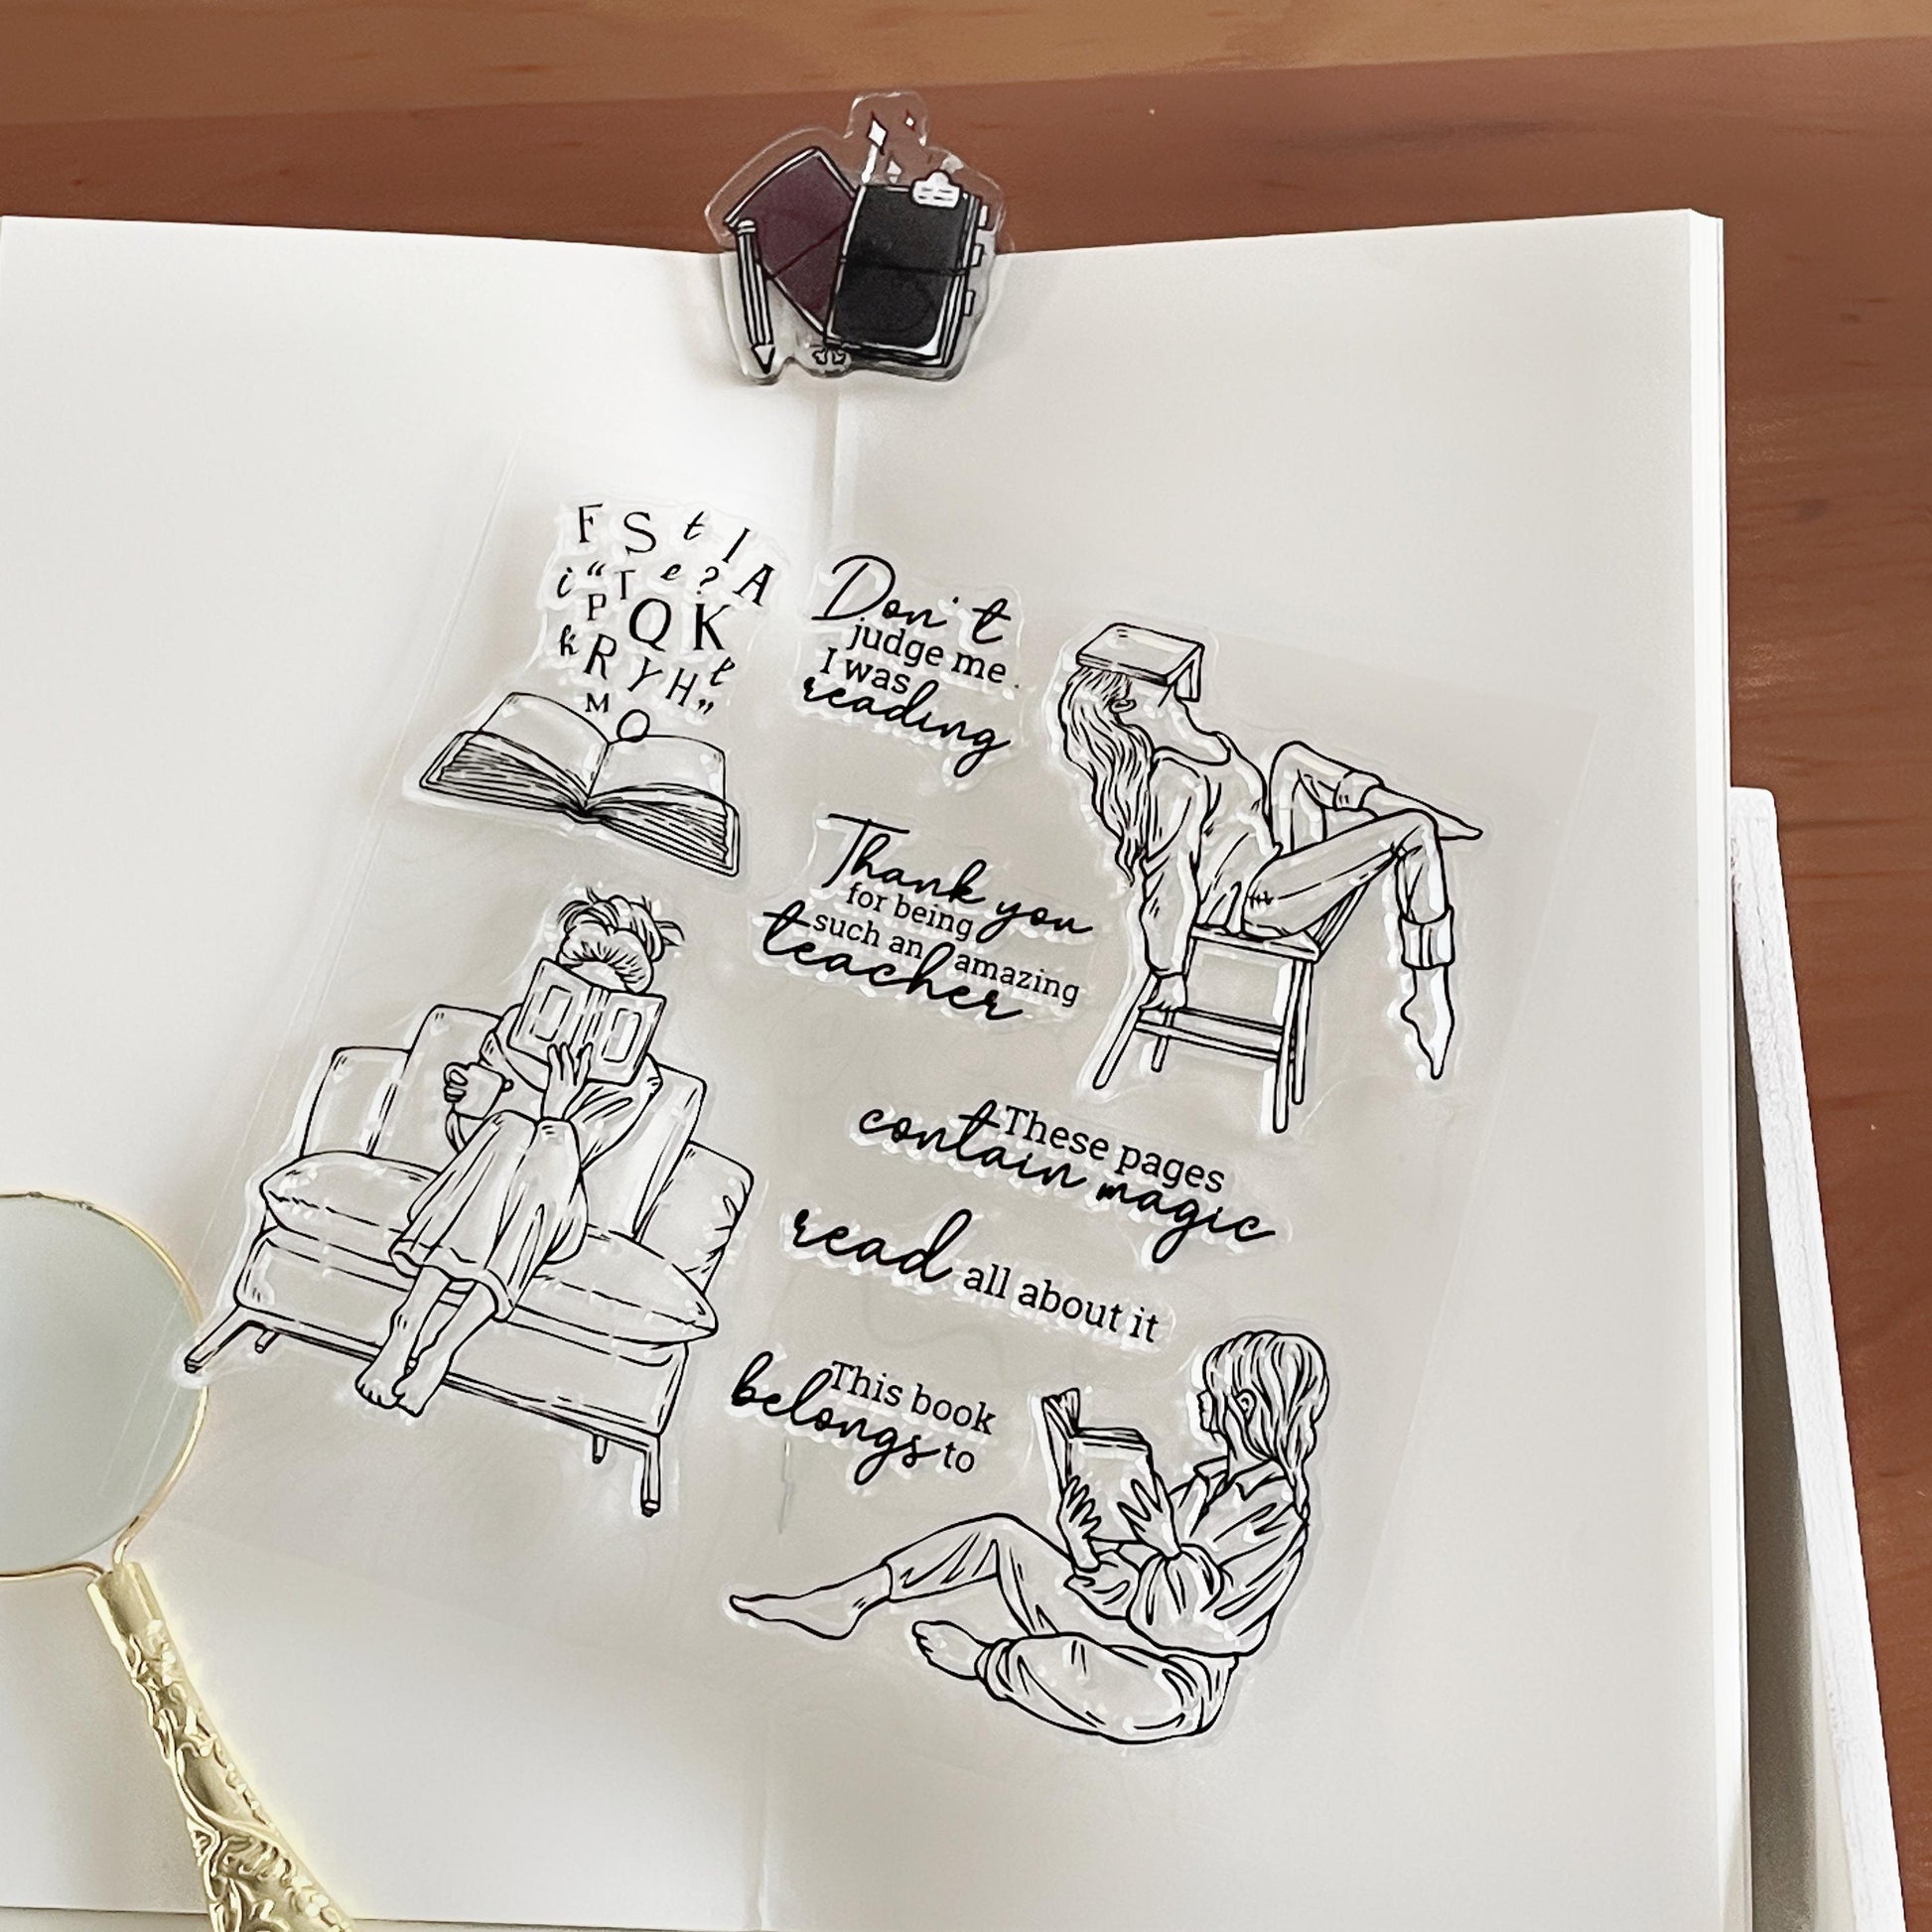 F S t I A
i “ T e ? A
P Q K
k R Y H t
M O ”
Don't
judge me
I was
reading
Thank you
for being
such an amazing
teacher
These pages
contain magic
read all about it
This book
belongs to